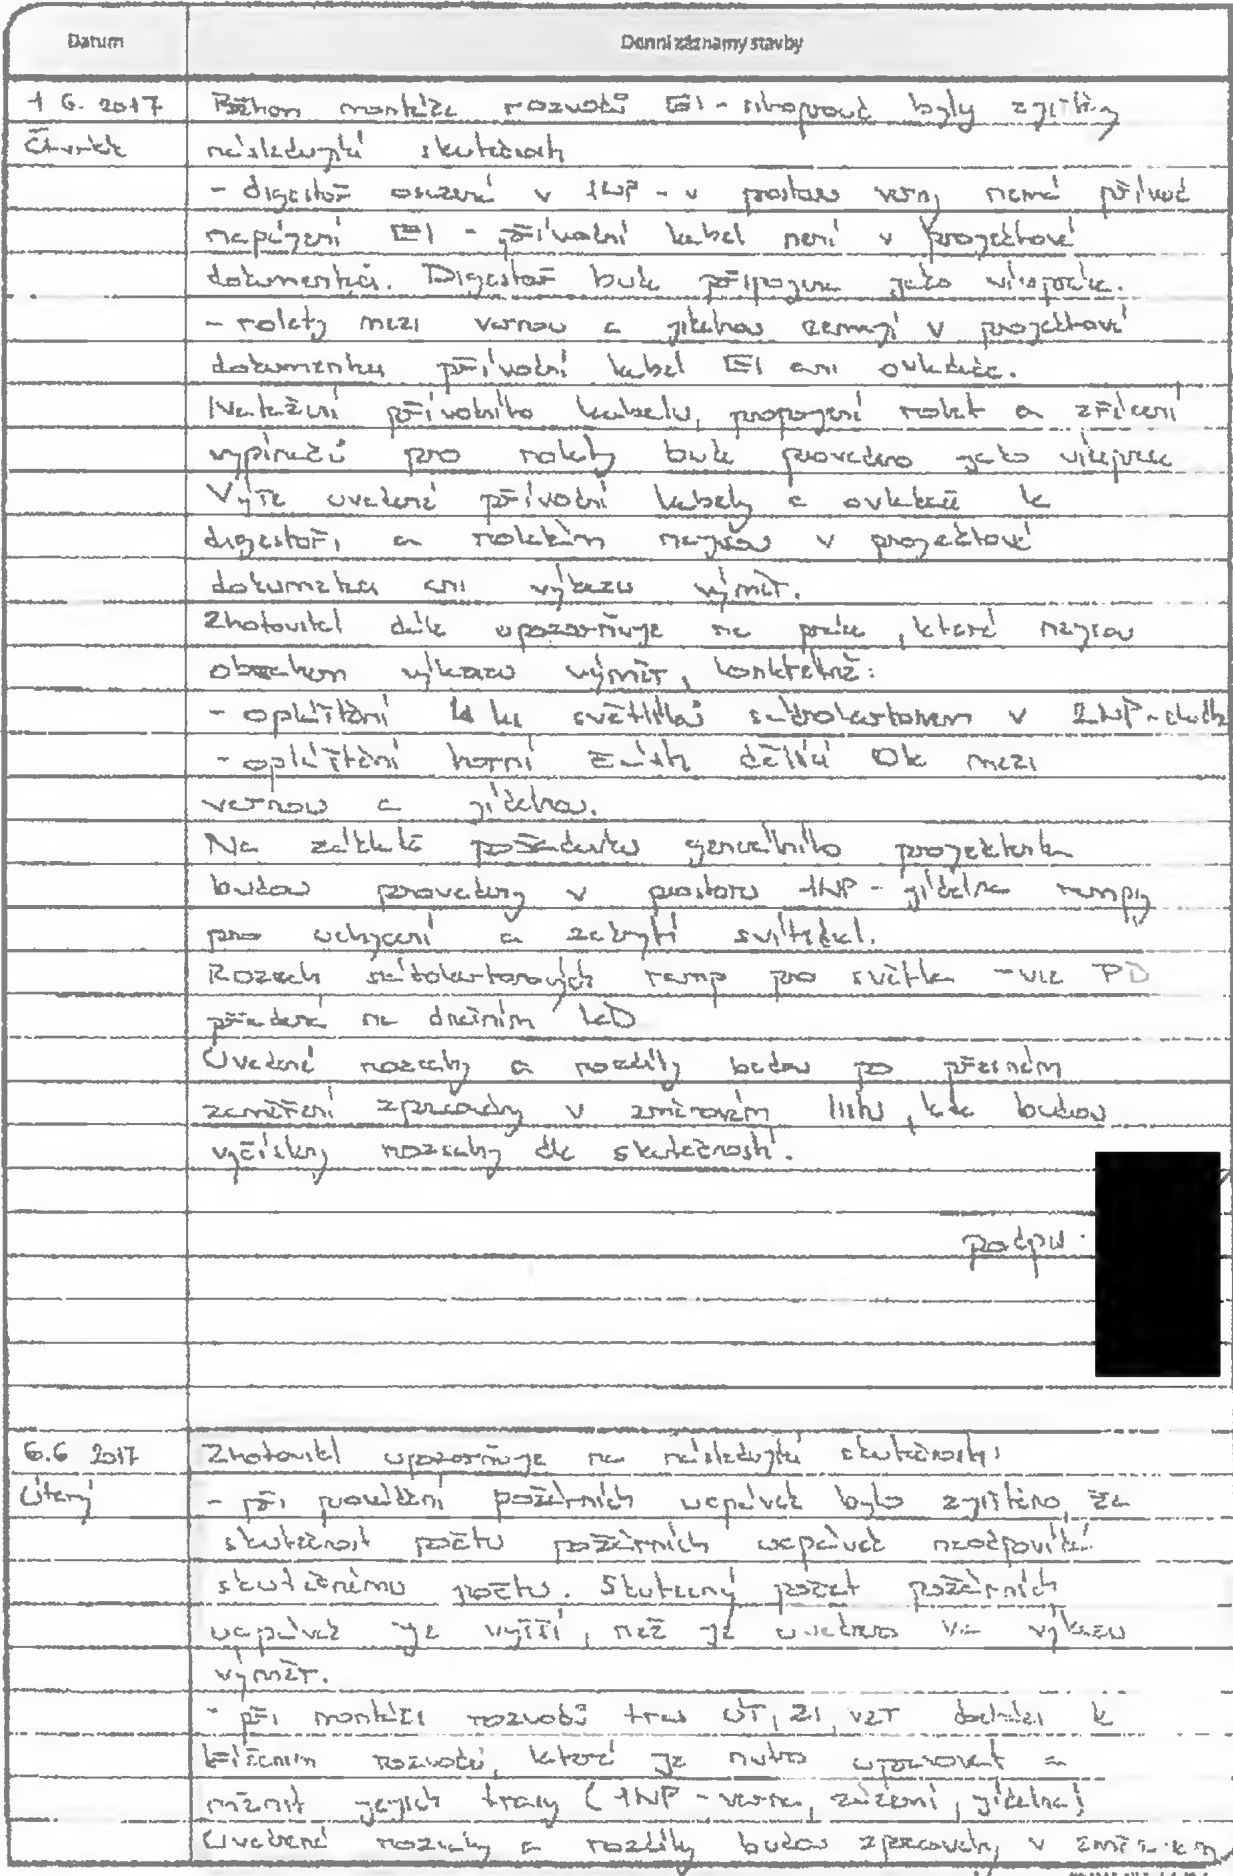 Datum Denní záznamy stavby
1 6. 2017 Během montáže rozvodů El-siloproud byly zjištěny
Čtvrtek následující skutečnosti
- digestoř osazená v 1NP - v prostoru varny nemá přívod
napájení El - přívodní kabel není v projektové
dokumentaci. Digestoř bude připojena jako vícepráce.
- rolety mezi varnou a jídelnou nemají v projektové
dokumentaci přívodní kabel El ani ovladače.
Natažení přívodního kabelu, propojení rolet a zřízení
vypínačů pro rolety bude provedeno jako vícepráce
Výše uvedené přívodní kabely a ovladače k
digestoři a roletám nejsou v projektové
dokumentaci ani výkazu výměr.
Zhotovitel dále upozorňuje na práce, které nejsou
obsahem výkazu výměr, konkrétně:
- opláštění světlíků sádrokartonem v 2NP-
- opláštění horní části dělící Ok mezi
varnou a jídelnou.
Na základě požadavku generálního projektanta
budou provedeny v prostoru 1NP - jídelna rampy
pro uchycení a zakrytí svítidel.
Rozsah sádrokartonových ramp pro světla - viz PD
předaná na dnešním KD
Uvedené rozsahy a rozdíly budou po přesném
zaměření zpracovány v změnovém listu, kde budou
vyčísleny rozsahy dle skutečnosti.
podpis
6.6 2017 Zhotovitel upozorňuje na následující skutečnosti:
Úterý - při provádění požárních ucpávek bylo zjištěno, že
skutečnost počtu požárních ucpávek neodpovídá
skutečnému počtu. Skutečný počet požárních
ucpávek je vyšší, než je uvedeno ve výkazu
výměr.
- při montáži rozvodů tras ÚT, ZI, VZT dochází k
křížením rozvodů, které je nutno upravovat a
měnit jejich trasy (1NP - varna, zázemí, jídelna)
Uvedené rozsahy a rozdíly budou zpracovány v změnovém